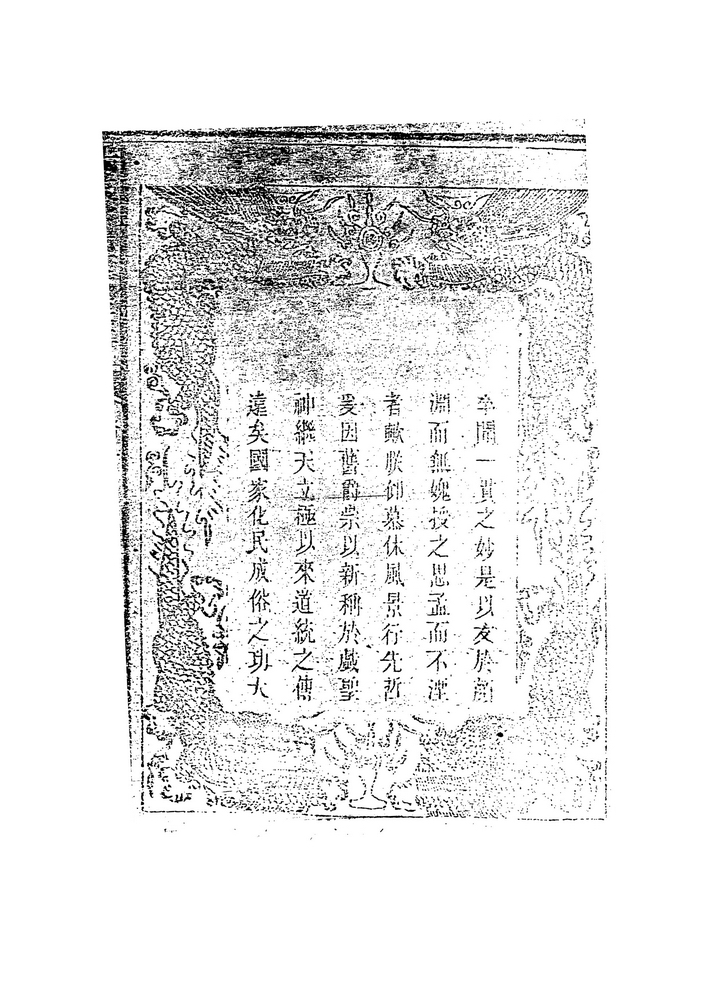 卒聞一貫之妙是以友於顔
淵而無媿授之思孟而不湮
者歟朕仰慕休風景行先哲
爰因舊爵崇以新稱於戲聖
神繼天立極以來道統之傳
遠矣國家化民成俗之功大